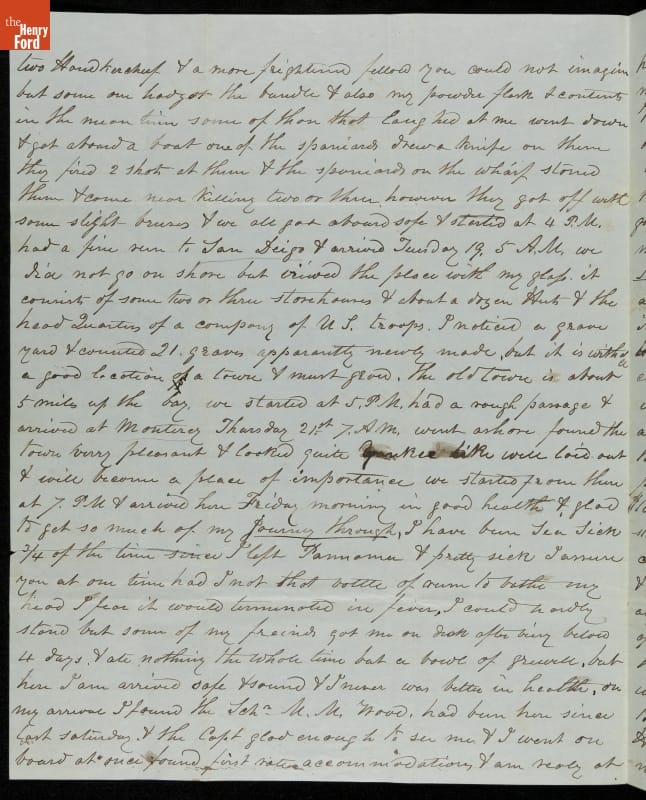 the
Henry
Ford
two Handkercheif & a more frightened fellow you could not imagine
but some one had got the bundle & also my powder flask & contents
in the mean time some of thoes that laughed at me went down
& got abourd a boat one of the spaniards drew a knife on them
they fired 2 shots at them & the spaniards on the wharf stoned
them & come near killing two or three however they got off with
some slight bruses & we all got abourd safe & started at 4 P.M.
had a fine run to San Deigo & arrived Tuesday 19, 5 A.M. we
did not go on shore but viewed the place with my glass. it
consists of some two or three storehouses & about a dozen Huts & the
head Quarters of a company of U.S. troops. I noticed a grave
yard & counted 21. graves apparantly newly made, but it is with
a good location for a town & must grow. The old town is about
5 miles up the bay. we started at 5. P.M. had a rough passage &
arrived at Monterey Thursday 21st 7. A.M. went ashore found the
town very pleasant & looked quite Yankee like well laid out
& will become a place of importance we started from there
at 7. P.M & arrived here Friday morning in good health & glad
to get so much of my Journey through, I have been Sea Sick
3/4 of the time since I left Pannama & pretty sick I assure
you at one time had I not that bottle of rum to bathe my
head I fear it would terminated in fever, I could hardly
stand but some of my freinds got me on deck after being below
4 days. & ate nothing the whole time but a bowl of gruell. but
here I am arrived safe & sound & I never was better in health. on
my arrival I found the Schr M. M. Wood. had been here since
last saturday. & the Capt glad enough to see me & I went on
board at once found first rate accommodations & am realy at